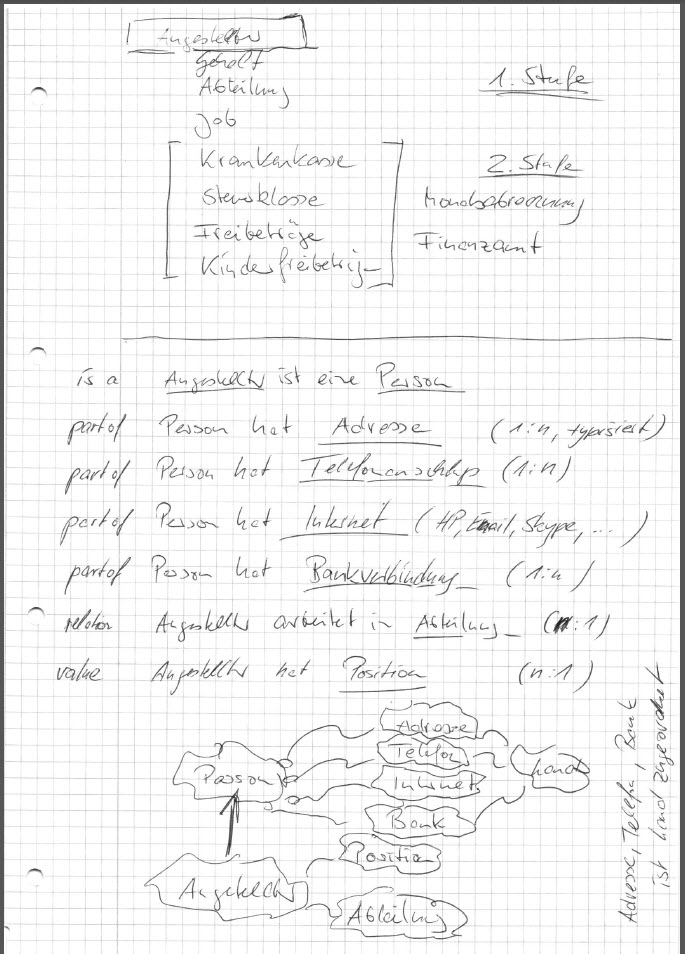 Angestellter
Gehalt
Abteilung
Job
Krankenkasse
Steuerklasse
Freibeträge
Kinderfreibeträge
1. Stufe
2. Stufe
Monatsabrechnung
Finanzamt
is a Angestellter ist eine Person
part of Person hat Adresse (1:n, typisiert)
part of Person hat Telefonanschluss (1:n)
part of Person hat Internet (HP, Email, Skype, ...)
part of Person hat Bankverbindung (1:n)
relation Angestellter arbeitet in Abteilung (n:1)
value Angestellter hat Position (n:1)
Adresse
Telefon
Person
Internet
Land
Bank
Position
Angestellter
Abteilung
Adresse, Telefon, Bank
ist Land zugeordnet